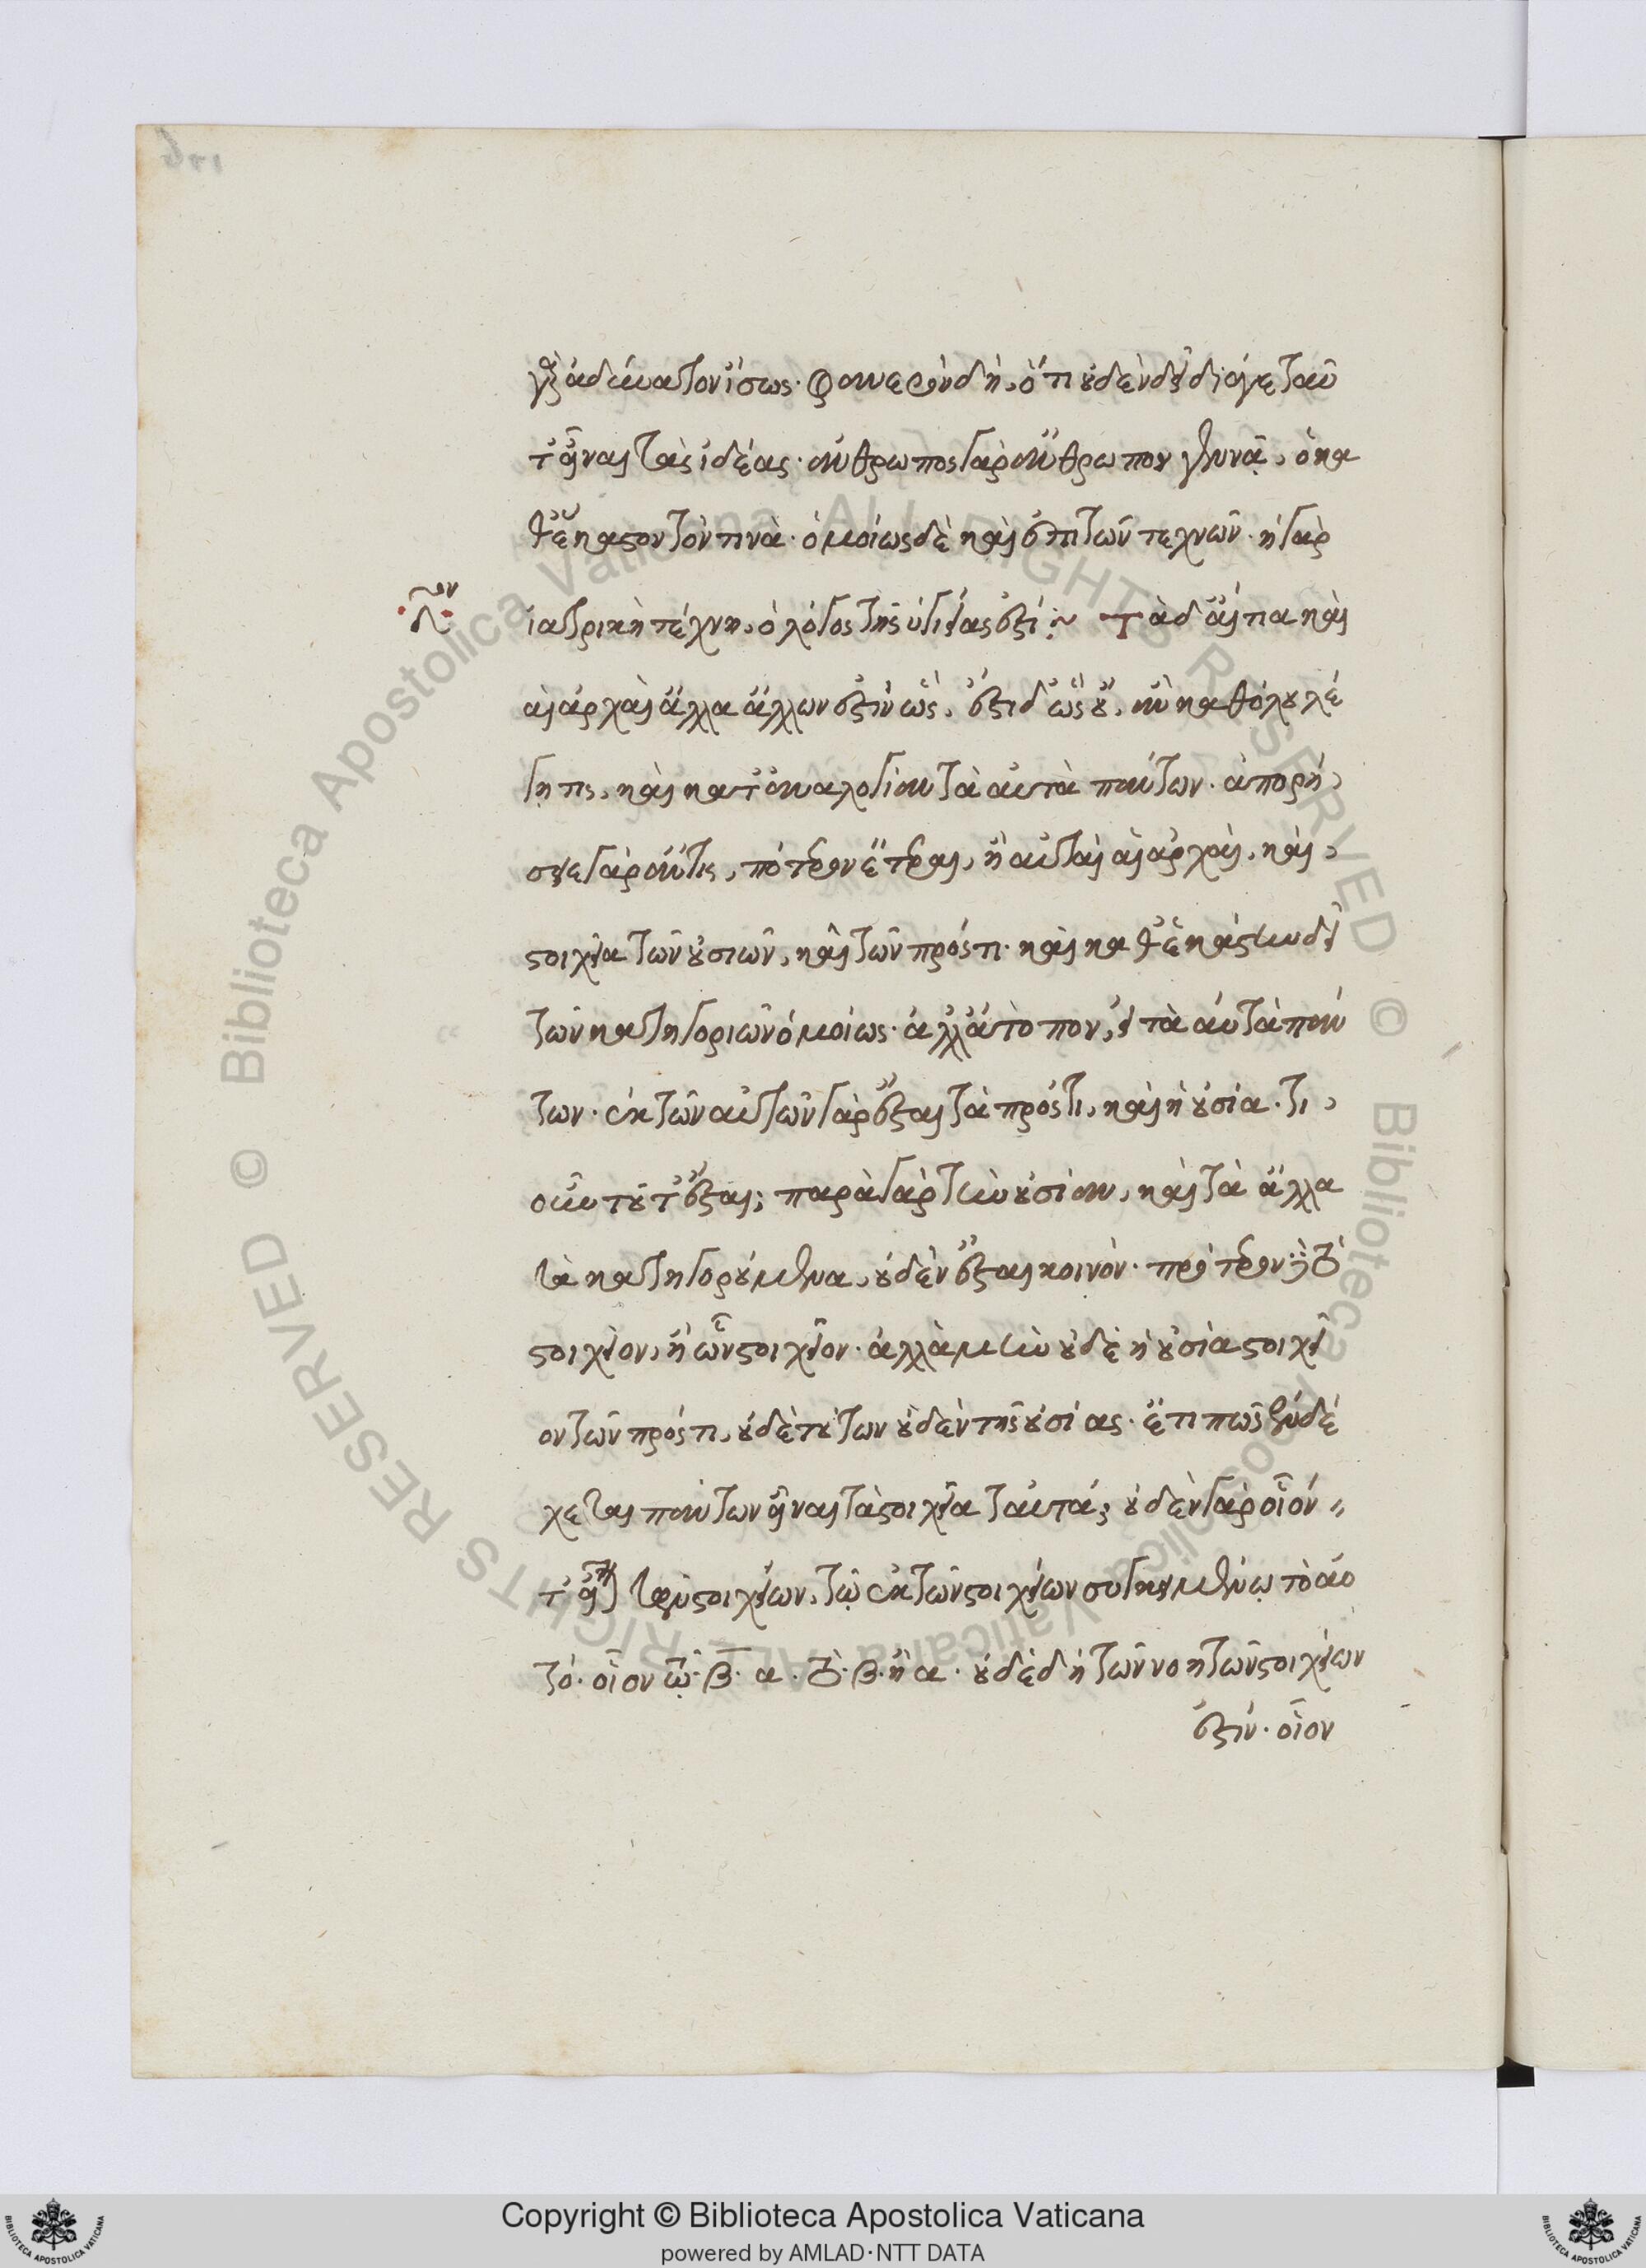 γὰρ ἀδύνατον ἴσως· φανερὸν δὴ, ὅτι οὐδὲν δεῖ διάγε ταῦ
τ᾽ εἶναι τὰς ἰδέας· ἄνθρωπος γὰρ ἄνθρωπον γεννᾷ, ὁ κα
θ᾽ ἕκαστον τὸν τινὰ· ὁμοίως δὲ καὶ ἐπὶ τῶν τεχνῶν· ἡ γὰρ
ἰατρικὴ τέχνη, ὁ λόγος τῆς ὑγιείας ἐστί: ~ Τὰ δ᾽ αἴτια καὶ
αἱ ἀρχαὶ ἄλλα ἄλλων ἐστὶν ὥς, ἔστι δ᾽ ὡς οὔ, ἂν καθόλου λέ
γῃ τις, καὶ κατ᾽ ἀναλογίαν τὰ αὐτὰ πάντων· ἀπορή
σειε γὰρ ἄν τις, πότερον ἕτεραι, ἢ αὐταὶ αἱ ἀρχαὶ, καὶ
στοιχεῖα τῶν οὐσιῶν, καὶ τῶν πρός τι· καὶ καθ᾽ ἑκάστην δεῖ
τῶν κατηγοριῶν ὁμοίως· ἀλλ᾽ ἄτοπον, εἰ τὰ αὐτὰ πάν
των· ἐκ τῶν αὐτῶν γὰρ ἔσται τὰ πρός τι, καὶ ἡ οὐσία· τί
οὖν τοῦτ᾽ ἔσται; παρὰ γὰρ τὴν οὐσίαν, καὶ τὰ ἄλλα
τὰ κατηγορούμενα, οὐδὲν ἔσται κοινόν· πρότερον δὲ τὸ
στοιχεῖον, ἢ ὧν στοιχεῖον· ἀλλὰ μὴν οὐδὲ ἡ οὐσία στοιχεῖ
ον τῶν πρός τι, οὐδὲ τούτων οὐδὲν τῆς οὐσίας· ἔτι πῶς ἐνδέ
χεται πάντων εἶναι τὰ στοιχεῖα ταὐτά; οὐδὲν γὰρ οἷόν
τ᾽ εἶναι τῶν στοιχείων, τῷ ἐκ τῶν στοιχείων συγκειμένῳ τὸ αὐ
τό· οἷον τῷ· β· α· τὸ· β· ἢ α· οὐδὲ δὴ τῶν νοητῶν στοιχεῖων
ἐστίν· οἷον